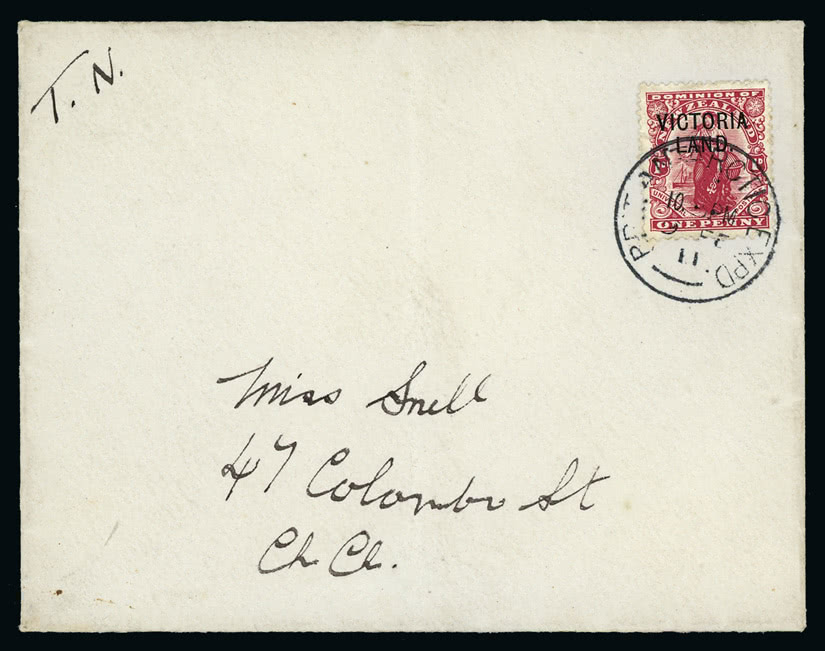 T. N.
DOMINION OF
NEW ZEALAND
VICTORIA
LAND.
UNIVERSAL POSTAGE
ONE PENNY
BRIT. ANTARCTIC EXPD.
10 PM
11
Miss Snell
47 Colombo St
Ch Ch.